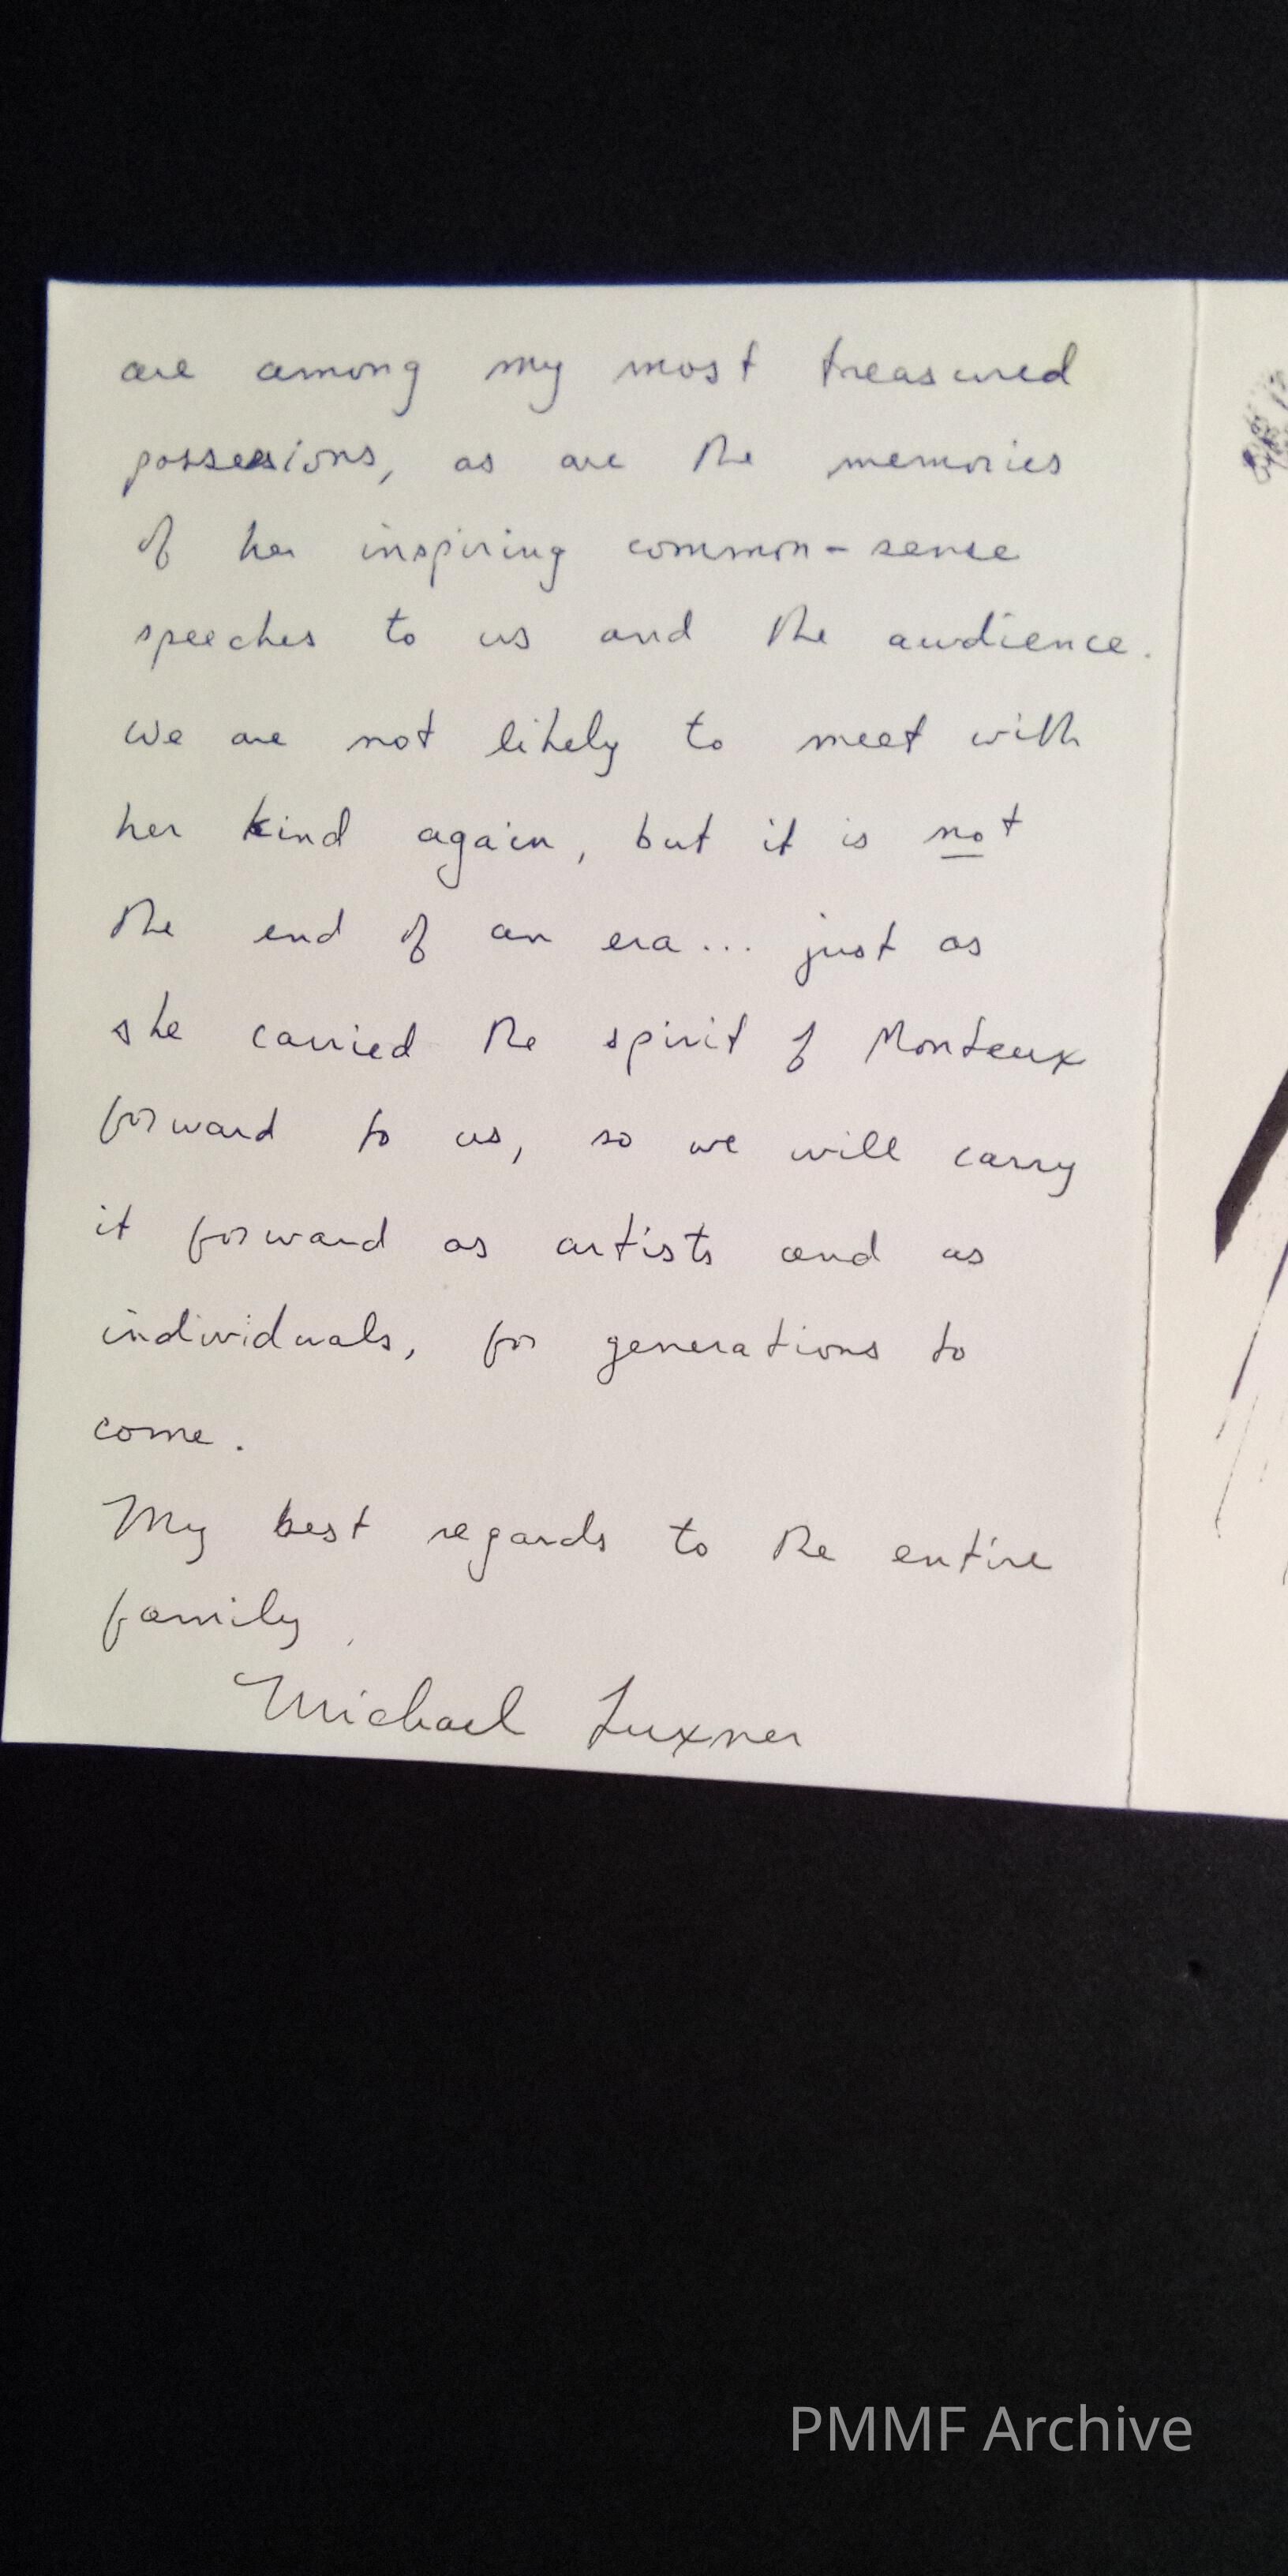 are among my most treasured
possessions, as are the memories
of her inspiring common-sense
speeches to us and the audience.
We are not likely to meet with
her kind again, but it is not
the end of an era... just as
she carried the spirit of Monteux
forward to us, so we will carry
it forward as artists and as
individuals, for generations to
come.
My best regards to the entire
family,
Michael Luxner
PMMF Archive